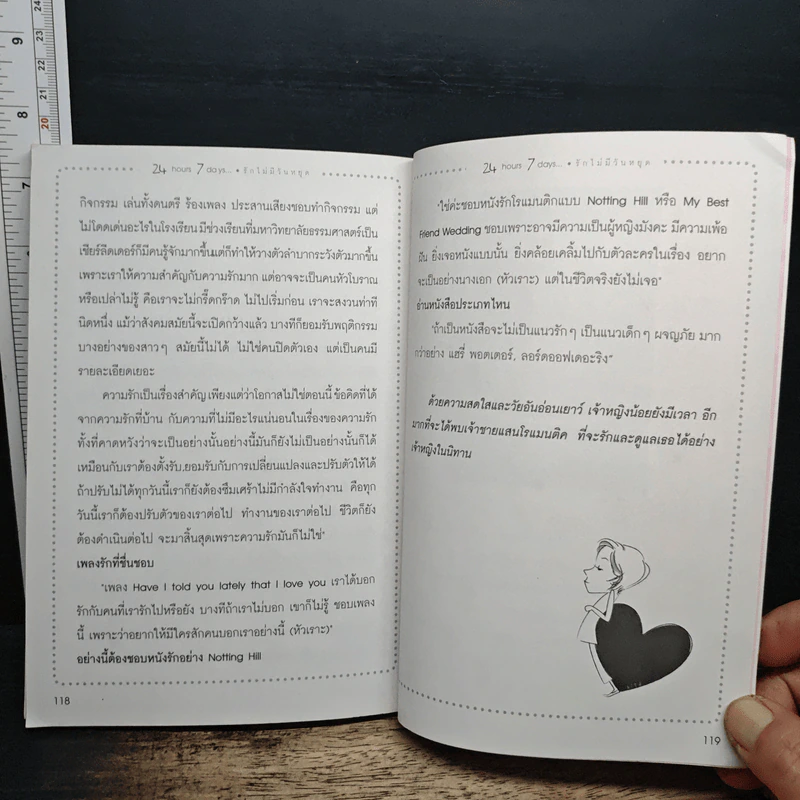 24 hours 7 days... • รักไม่มีวันหยุด
กิจกรรม เล่นทั้งดนตรี ร้องเพลง ประสานเสียงชอบทำกิจกรรม แต่
ไม่โดดเด่นอะไรในโรงเรียน มีช่วงเรียนที่มหาวิทยาลัยธรรมศาสตร์เป็น
เชียร์ลีดเดอร์ก็มีคนรู้จักมากขึ้นแต่ก็ทำให้วางตัวลำบากระวังตัวมากขึ้น
เพราะเราให้ความสำคัญกับความรักมาก แต่อาจจะเป็นคนหัวโบราณ
หรือเปล่าไม่รู้ คือเราจะไม่กรี๊ดกร๊าด ไม่ไปเริ่มก่อน เราจะสงวนท่าที
นิดหนึ่ง แม้ว่าสังคมสมัยนี้จะเปิดกว้างแล้ว บางทีก็ยอมรับพฤติกรรม
บางอย่างของสาวๆ สมัยนี้ไม่ได้ ไม่ใช่คนปิดตัวเอง แต่เป็นคนมี
รายละเอียดเยอะ
ความรักเป็นเรื่องสำคัญ เพียงแต่ว่าโอกาสไม่ใช่ตอนนี้ ข้อคิดที่ได้
จากความรักที่บ้าน กับความที่ไม่มีอะไรแน่นอนในเรื่องของความรัก
ทั้งที่คาดหวังว่าจะเป็นอย่างนั้นอย่างนี้มันก็ยังไม่เป็นอย่างนั้นก็ได้
เหมือนกับเราต้องตั้งรับ.ยอมรับกับการเปลี่ยนแปลงและปรับตัวให้ได้
ถ้าปรับไม่ได้ทุกวันนี้เราก็ยังต้องซึมเศร้าไม่มีกำลังใจทำงาน คือทุก
วันนี้เราก็ต้องปรับตัวของเราต่อไป ทำงานของเราต่อไป ชีวิตก็ยัง
ต้องดำเนินต่อไป จะมาสิ้นสุดเพราะความรักมันก็ไม่ใช่"
เพลงรักที่ชื่นชอบ
"เพลง Have I told you lately that I love you เราได้บอก
รักกับคนที่เรารักไปหรือยัง บางทีถ้าเราไม่บอก เขาก็ไม่รู้ ชอบเพลง
นี้ เพราะว่าอยากให้มีใครสักคนบอกเราอย่างนี้ (หัวเราะ)"
อย่างนี้ต้องชอบหนังรักอย่าง Notting Hill
118
24 hours 7 days... • รักไม่มีวันหยุด
"ใช่ค่ะชอบหนังรักโรแมนติกแบบ Notting Hill หรือ My Best
Friend Wedding ชอบเพราะอาจมีความเป็นผู้หญิงมังคะ มีความเพ้อ
ฝัน ยิ่งเจอหนังแบบนั้น ยิ่งคล้อยเคลิ้มไปกับตัวละครในเรื่อง อยาก
จะเป็นอย่างนางเอก (หัวเราะ) แต่ในชีวิตจริงยังไม่เจอ"
อ่านหนังสือประเภทไหน
"ถ้าเป็นหนังสือจะไม่เป็นแนวรักๆ เป็นแนวเด็กๆ ผจญภัย มาก
กว่าอย่าง แฮรี่ พอตเตอร์, ลอร์ดออฟเดอะริง"
ด้วยความสดใสและวัยอันอ่อนเยาว์ เจ้าหญิงน้อยยังมีเวลา อีก
มากที่จะได้พบเจ้าชายแสนโรแมนติค ที่จะรักและดูแลเธอได้อย่าง
เจ้าหญิงในนิทาน
119
9
8
7
24
23
22
21
20